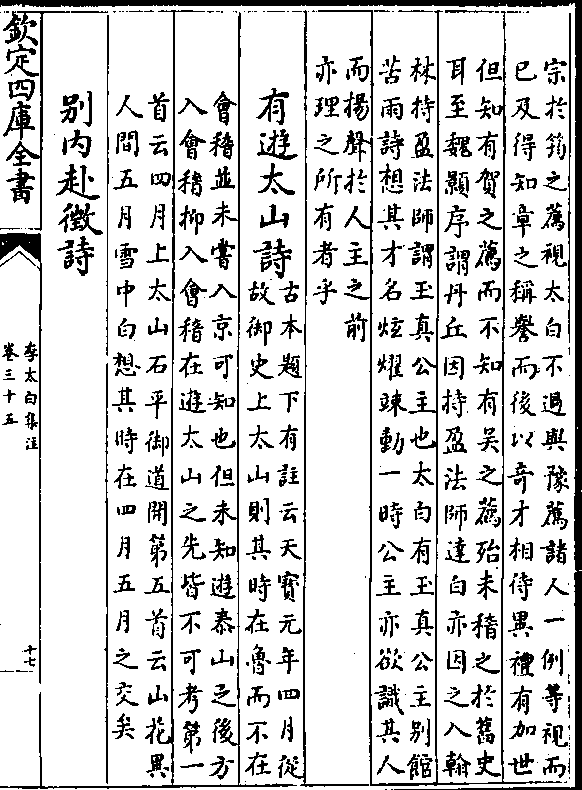 宗於筠之薦視太白不過與豫薦諸人一例等視而
已及得知章之稱譽而後以奇才相待異禮有加世
但知有賀之薦而不知有吳之薦殆未稽之於舊史
耳至魏顥序謂丹丘因持盈法師達白亦因之入翰
林持盈法師謂玉真公主也太白有玉真公主別館
苦雨詩想其才名炫燿竦動一時公主亦欲識其人
而揚聲於人主之前
亦理之所有者乎
有遊太山詩
古本題下有註云天寶元年四月從
故御史上太山則其時在魯而不在
會稽並未嘗入京可知也但未知遊泰山之後方
入會稽抑入會稽在遊太山之先皆不可考第一
首云四月上太山石平御道開第五首云山花異
人間五月雪中白想其時在四月五月之交矣
別內赴徵詩
欽定四庫全書
李太白集注
卷三十五
十七